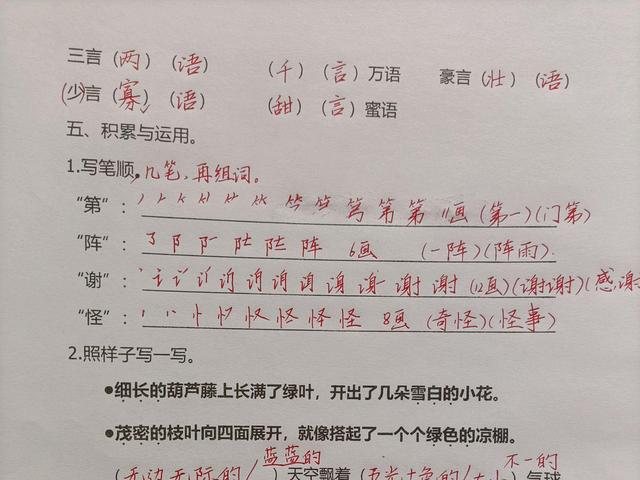 三言（两）（语） （千）（言）万语 豪言（壮）（语）
（少）言（寡）（语） （甜）（言）蜜语
五、积累与运用。
1.写笔顺，几笔，再组词。
“第”： 11画（第一）（门第）
“阵”： 6画（一阵）（阵雨）.
“谢”： （12画）（谢谢）（感谢
“怪”： 8画（奇怪）（怪事）
2.照样子写一写。
●细长的葫芦藤上长满了绿叶，开出了几朵雪白的小花。
●茂密的枝叶向四面展开，就像搭起了一个个绿色的凉棚。
（无边无际的/蓝蓝的）天空飘着（五光十色的/大小不一的）气球